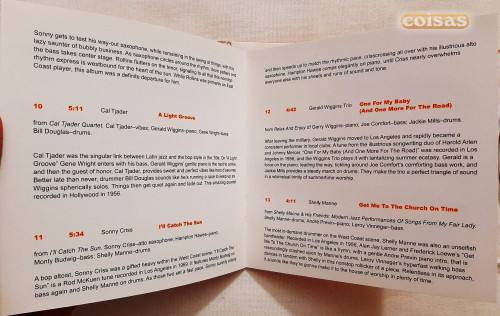 Sonny gets to test his way-out saxophone, while remaining in the swing of things with this
lazy saunter of bubbly business. As saxophone circles around the rhythm, blues patters and
the bass takes center stage. Rollins flutters on the tenor, signaling to all that this nonstop
rhythm express is westbound for the heart of the sun. While Rollins was primarily an East
Coast player, this album was a definite departure for him.
10 5:11 Cal Tjader A Light Groove
from Cal Tjader Quartet. Cal Tjader–vibes; Gerald Wiggins–piano; Gene Wright–bass;
Bill Douglas–drums.
Cal Tjader was the singular link between Latin jazz and the bop style in the '50s. On "A Light
Groove" Gene Wright enters with his bass. Gerald Wiggins' gentle piano is the next to arrive,
and then the guest of honor, Cal Tjader, provides sweet and perfect vibes like
Better late than never, drummer Bill Douglas sounds like he's running a late bakeshop as
Wiggins spherically solos. Things then get quiet again and fade out. The amazing quartet
recorded in Hollywood in 1956.
11 5:34 Sonny Criss I'll Catch The Sun
from I'll Catch The Sun. Sonny Criss–alto saxophone; Hampton Hawes–piano;
Monty Budwig–bass; Shelly Manne–drums.
A bop altoist, Sonny Criss was a gifted heavy within the West Coast scene. "I'll Catch The
Sun" is a Rod McKuen tune recorded in Los Angeles in 1969. It features Monty Budwig on
bass again and Shelly Manne on drums. As those five set a fast pace, Sonny surely enters
and then speeds up to match the rhythmic pace, crisscrossing all over with his illustrious alto
saxophone. Hampton Hawes comps elegantly on piano, until Criss nearly overwhelms
everyone else with his sheets and runs of sound and tone.
12 4:42 Gerald Wiggins Trio One For My Baby
(And One More For The Road)
from Relax And Enjoy It! Gerry Wiggins–piano; Joe Comfort–bass; Jackie Mills–drums.
After leaving the military, Gerald Wiggins moved to Los Angeles and rapidly became a
consistent performer in local clubs. A tune from the illustrious songwriting duo of Harold Arlen
and Johnny Mercer, "One For My Baby (And One More For The Road)" was recorded in Los
Angeles in 1956, and the Wiggins Trio plays it with tantalizing summer ecstasy. Gerald is a
force on the piano; leading the way, looking around Joe Comfort's comforting bass work, and
Jackie Mills provides a steady march on drums. They make the trio a perfect triangle of sound
in a whimsical lenity of summertime worship.
13 4:11 Shelly Manne Get Me To The Church On Time
from Shelly Manne & His Friends: Modern Jazz Performances Of Songs From My Fair Lady.
Shelly Manne–drums; André Previn–piano; Leroy Vinnegar–bass.
The most in-demand drummer on the West Coast scene, Shelly Manne was also an unselfish
bandleader. Recorded in Los Angeles in 1956, Alan Jay Lerner and Frederick Loewe's "Get
Me To The Church On Time" is crazy hymn, with a gentle Andre Previn piano intro, that is
reasonably maimed by Manne's drums. Leroy Vinnegar's hyperfast walking bass
dances in tandem with Shelly in this nonstop rollicker of a piece. Relentless in its approach,
it sounds like they're gonna make it to the house of worship in plenty of time.
coisas